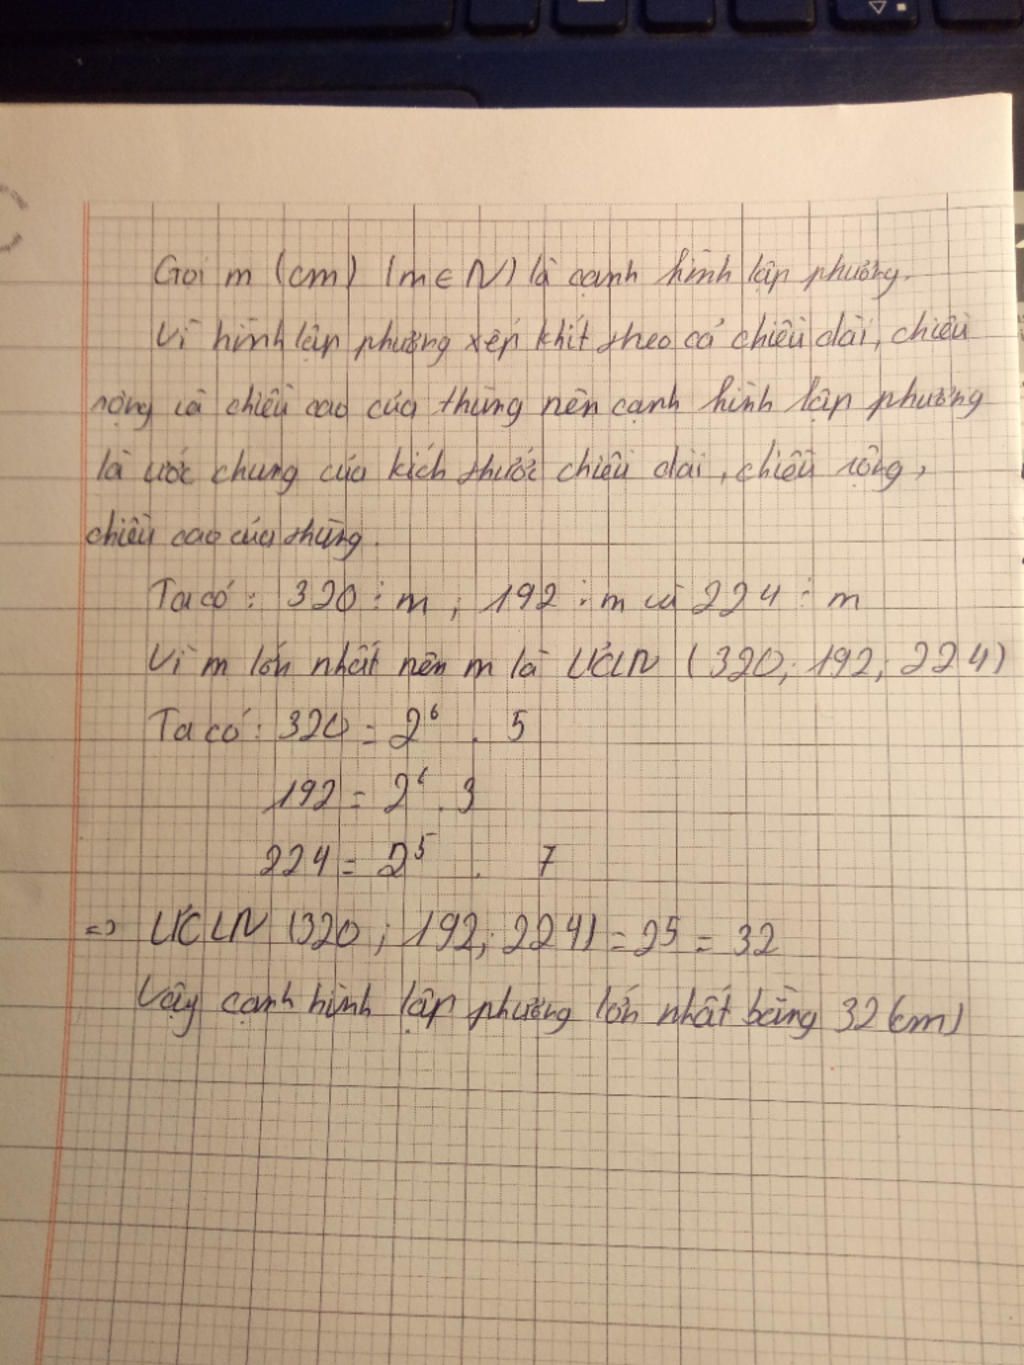 Gọi m (cm) (m ∈ N) là cạnh hình lập phương.
Vì hình lập phương xếp khít theo cả chiều dài, chiều
rộng và chiều cao của thùng nên cạnh hình lập phương
là ước chung của kích thước chiều dài, chiều rộng,
chiều cao của thùng.
Ta có: 320 ⋮ m ; 192 ⋮ m và 224 ⋮ m
Vì m lớn nhất nên m là ƯCLN (320; 192; 224)
Ta có: 320 = 2⁶ . 5
192 = 2⁶ . 3
224 = 2⁵ . 7
=> ƯCLN (320 ; 192; 224) = 2⁵ = 32
Vậy cạnh hình lập phương lớn nhất bằng 32 (cm)